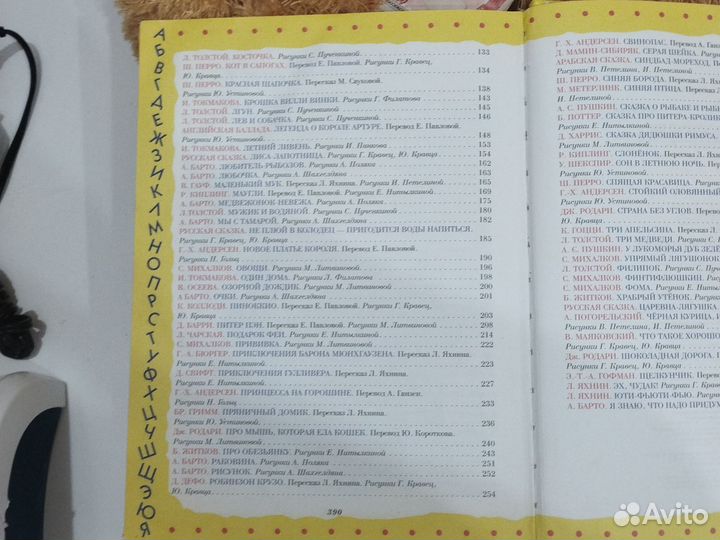 А
Б
В
Г
Д
Е
Ж
З
И
К
Л
М
Н
О
П
Р
С
Т
У
Ф
Х
Ц
Ч
Ш
Щ
Э
Ю
Я
Л. ТОЛСТОЙ. КОСТОЧКА. Рисунки С. Пучениной 133
Ш. ПЕРРО. КОТ В САПОГАХ. Пересказ Е. Павловой. Рисунки Г. Кравец,
Ю. Кравца 134
Ш. ПЕРРО. КРАСНАЯ ШАПОЧКА. Пересказ М. Сауковой.
Рисунки Ю. Устиновой 138
И. ТОКМАКОВА. КРОШКА ВИЛЛИ ВИНКИ. Рисунки Г. Филатова 143
Л. ТОЛСТОЙ. ЛГУН. Рисунки С. Пучениной 145
Л. ТОЛСТОЙ. ЛЕВ И СОБАЧКА. Рисунки С. Пучениной 146
АНГЛИЙСКАЯ БАЛЛАДА. ЛЕГЕНДА О КОРОЛЕ АРТУРЕ. Перевод Е. Павловой.
Рисунки Ю. Устиновой 148
И. ТОКМАКОВА. ЛЕТНИЙ ЛИВЕНЬ. Рисунки И. Панкова 153
РУССКАЯ СКАЗКА. ЛИСА ЛАПОТНИЦА. Рисунки Г. Кравец, Ю. Кравца 154
А. БАРТО. ЛЮБИТЕЛЬ РЫБОЛОВ. Рисунки А. Шахгелдяна 162
А. БАРТО. ЛЮБОЧКА. Рисунки А. Шахгелдяна 164
В. ГАУФ. МАЛЕНЬКИЙ МУК. Пересказ Л. Яхнина. Рисунки И. Петелиной 165
Р. КИПЛИНГ. МАУГЛИ. Перевод Е. Павловой. Рисунки Е. Нитылкиной 169
А. БАРТО. МЕДВЕЖОНОК-НЕВЕЖА. Рисунки А. Поляка 175
Л. ТОЛСТОЙ. МУЖИК И ВОДЯНОЙ. Рисунки С. Пучениной 180
А. БАРТО. МЫ С ТАМАРОЙ. Рисунки А. Шахгелдяна 182
РУССКАЯ СКАЗКА. НЕ ПЛЮЙ В КОЛОДЕЦ — ПРИГОДИТСЯ ВОДЫ НАПИТЬСЯ.
Рисунки Г. Кравец, Ю. Кравца 185
Г.-Х. АНДЕРСЕН. НОВОЕ ПЛАТЬЕ КОРОЛЯ. Перевод Е. Павловой.
Рисунки Н. Гольц 190
С. МИХАЛКОВ. ОВОЩИ. Рисунки М. Литвиновой 196
И. ТОКМАКОВА. ОДИН ДОМА. Рисунки Л. Филатова 198
В. ОСЕЕВА. ОЗОРНОЙ ДОЖДИК. Рисунки М. Литвиновой 200
А БАРТО. ОЧКИ. Рисунки А. Шахгелдяна 201
К. КОЛЛОДИ. ПИНОККИО. Пересказ Е. Павловой. Рисунки Г. Кравец,
Ю. Кравца 203
Д. БАРРИ. ПИТЕР ПЭН. Пересказ Е. Павловой. Рисунки М. Литвиновой 208
Л. ЧАРСКАЯ. ПОДАРОК ФЕИ. Рисунки Е. Нитылкиной 214
С. МИХАЛКОВ. ПРИВИВКА. Рисунки М. Литвиновой 222
Г.-А. БЮРГЕР. ПРИКЛЮЧЕНИЯ БАРОНА МЮНХГАУЗЕНА. Пересказ Л. Яхнина.
Рисунки Е. Нитылкиной 223
Д. СВИФТ. ПРИКЛЮЧЕНИЯ ГУЛЛИВЕРА. Пересказ Л. Яхнина.
Рисунки Е. Нитылкиной 227
Г.-Х. АНДЕРСЕН. ПРИНЦЕССА НА ГОРОШИНЕ. Перевод А. Ганзен.
Рисунки Н. Гольц 233
БР. ГРИММ. ПРЯНИЧНЫЙ ДОМИК. Пересказ Л. Яхнина.
Рисунки Ю. Устиновой 236
ДЖ. РОДАРИ. ПРО МЫШЬ, КОТОРАЯ ЕЛА КОШЕК. Перевод Ю. Короткова.
Рисунки М. Литвиновой 240
Б. ЖИТКОВ. ПРО ОБЕЗЬЯНКУ. Рисунки Е. Нитылкиной 243
А. БАРТО. РАКОВИНА. Рисунки А. Поляка 251
А. БАРТО. РИСУНОК. Рисунки А. Шахгелдяна 252
Д. ДЕФО. РОБИНЗОН КРУЗО. Пересказ Л. Яхнина. Рисунки Г. Кравец,
Ю. Кравца 254
390
Г.-Х. АНДЕРСЕН. СВИНОПАС. Перевод А. Ганз
Д. МАМИН-СИБИРЯК. СЕРАЯ ШЕЙКА.
АРАБСКАЯ СКАЗКА. СИНДБАД-МОРЕХОД.
Рисунки В. Петелина, И. Петелиной
Ш. ПЕРРО. СИНЯЯ БОРОДА. Пересказ Л. Яхн
М. МЕТЕРЛИНК. СИНЯЯ ПТИЦА. Пересказ
И. Петелиной
А. С. ПУШКИН. СКАЗКА О РЫБАКЕ И РЫБ
Б. ПОТТЕР. СКАЗКА ПРО ПИТЕРА-КРОЛИ
Рисунки Е. Нитылкиной
Д. ХАРРИС. СКАЗКИ ДЯДЮШКИ РИМУСА.
Рисунки М. Литвиновой
Р. КИПЛИНГ. СЛОНЁНОК. Пересказ Л. Яхн
У. ШЕКСПИР. СОН В ЛЕТНЮЮ НОЧЬ.
Рисунки Ю. Устиновой
Ш. ПЕРРО. СПЯЩАЯ КРАСАВИЦА.
Г.-Х. АНДЕРСЕН. СТОЙКИЙ ОЛОВЯНН
Рисунки Ю. Устиновой
ДЖ. РОДАРИ. СТРАНА БЕЗ УГЛОВ.
К. ГОЦЦИ. ТРИ АПЕЛЬСИНА.
Л. ТОЛСТОЙ. ТРИ МЕДВЕДЯ.
А. С. ПУШКИН. У ЛУКОМОРЬЯ ДУБ ЗЕЛ
С. МИХАЛКОВ. УПРЯМЫЙ ЛЯГУШОНОК
Л. ТОЛСТОЙ. ФИЛИПОК. Рисунки С. П
С. МИХАЛКОВ. ФИНТИФЛЮШКИН.
С. МИХАЛКОВ. ФОМА. Рисунки М.
Б. ЖИТКОВ. ХРАБРЫЙ УТЁНОК.
РУССКАЯ СКАЗКА. ЦАРЕВНА-ЛЯГУШКА
А. ПОГОРЕЛЬСКИЙ. ЧЁРНАЯ КУРИЦА
Рисунки В. Петелина, И. Петелиной
В. МАЯКОВСКИЙ. ЧТО ТАКОЕ ХОРОШО
Рисунки Г. Кравец
ДЖ. РОДАРИ. ШОКОЛАДНАЯ ДОРОГА.
Рисунки Г. Кравец
Э.-Т.-А. ГОФМАН. ЩЕЛКУНЧИК.
Л. ЯХНИН. ЭХ, ЧУДАК! Рисунки
Л. ЯХНИН. ЮТИ-ФЬЮТИ-ФЬЮ.
А. БАРТО. Я ЗНАЮ, ЧТО НАДО ПРИДУ
Avito